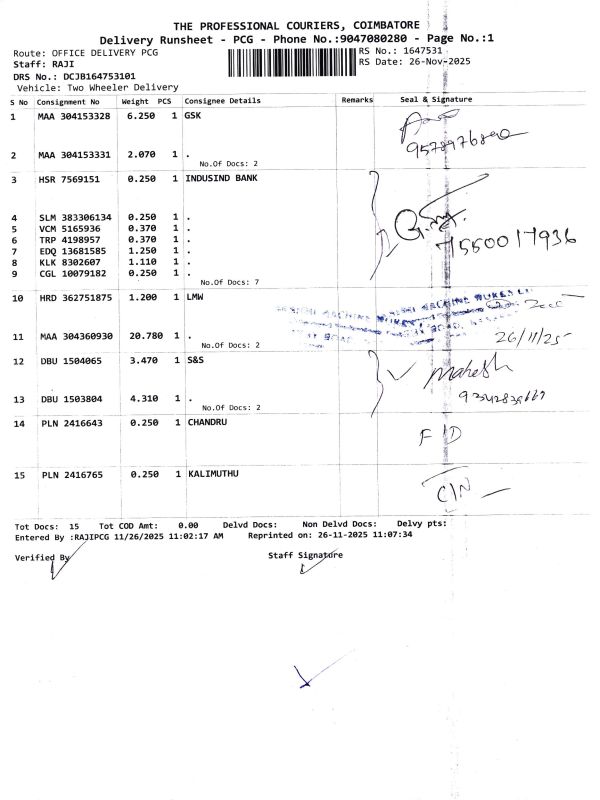 THE PROFESSIONAL COURIERS, COIMBATORE
Delivery Runsheet - PCG - Phone No.:9047080280 - Page No.:1
Route: OFFICE DELIVERY PCG RS No.: 1647531
Staff: RAJI RS Date: 26-Nov-2025
DRS No.: DCJB164753101
Vehicle: Two Wheeler Delivery
S No Consignment No Weight PCS Consignee Details Remarks Seal & Signature
1 MAA 304153328 6.250 1 GSK
2 MAA 304153331 2.070 1 .
No.Of Docs: 2
3 HSR 7569151 0.250 1 INDUSIND BANK
4 SLM 383306134 0.250 1 .
5 VCM 5165936 0.370 1 .
6 TRP 4198957 0.370 1 .
7 EDQ 13681585 1.250 1 .
8 KLK 8302607 1.110 1 .
9 CGL 10079182 0.250 1 .
7550017936
No.Of Docs: 7
10 HRD 362751875 1.200 1 LMW
11 MAA 304360930 20.780 1 .
26/11/25
No.Of Docs: 2
12 DBU 1504065 3.470 1 S&S
Mahesh
13 DBU 1503804 4.310 1 .
No.Of Docs: 2
14 PLN 2416643 0.250 1 CHANDRU
F I D
15 PLN 2416765 0.250 1 KALIMUTHU
C/N
Tot Docs: 15 Tot COD Amt: 0.00 Delvd Docs: Non Delvd Docs: Delvy pts:
Entered By :RAJIPCG 11/26/2025 11:02:17 AM Reprinted on: 26-11-2025 11:07:34
Verified By Staff Signature